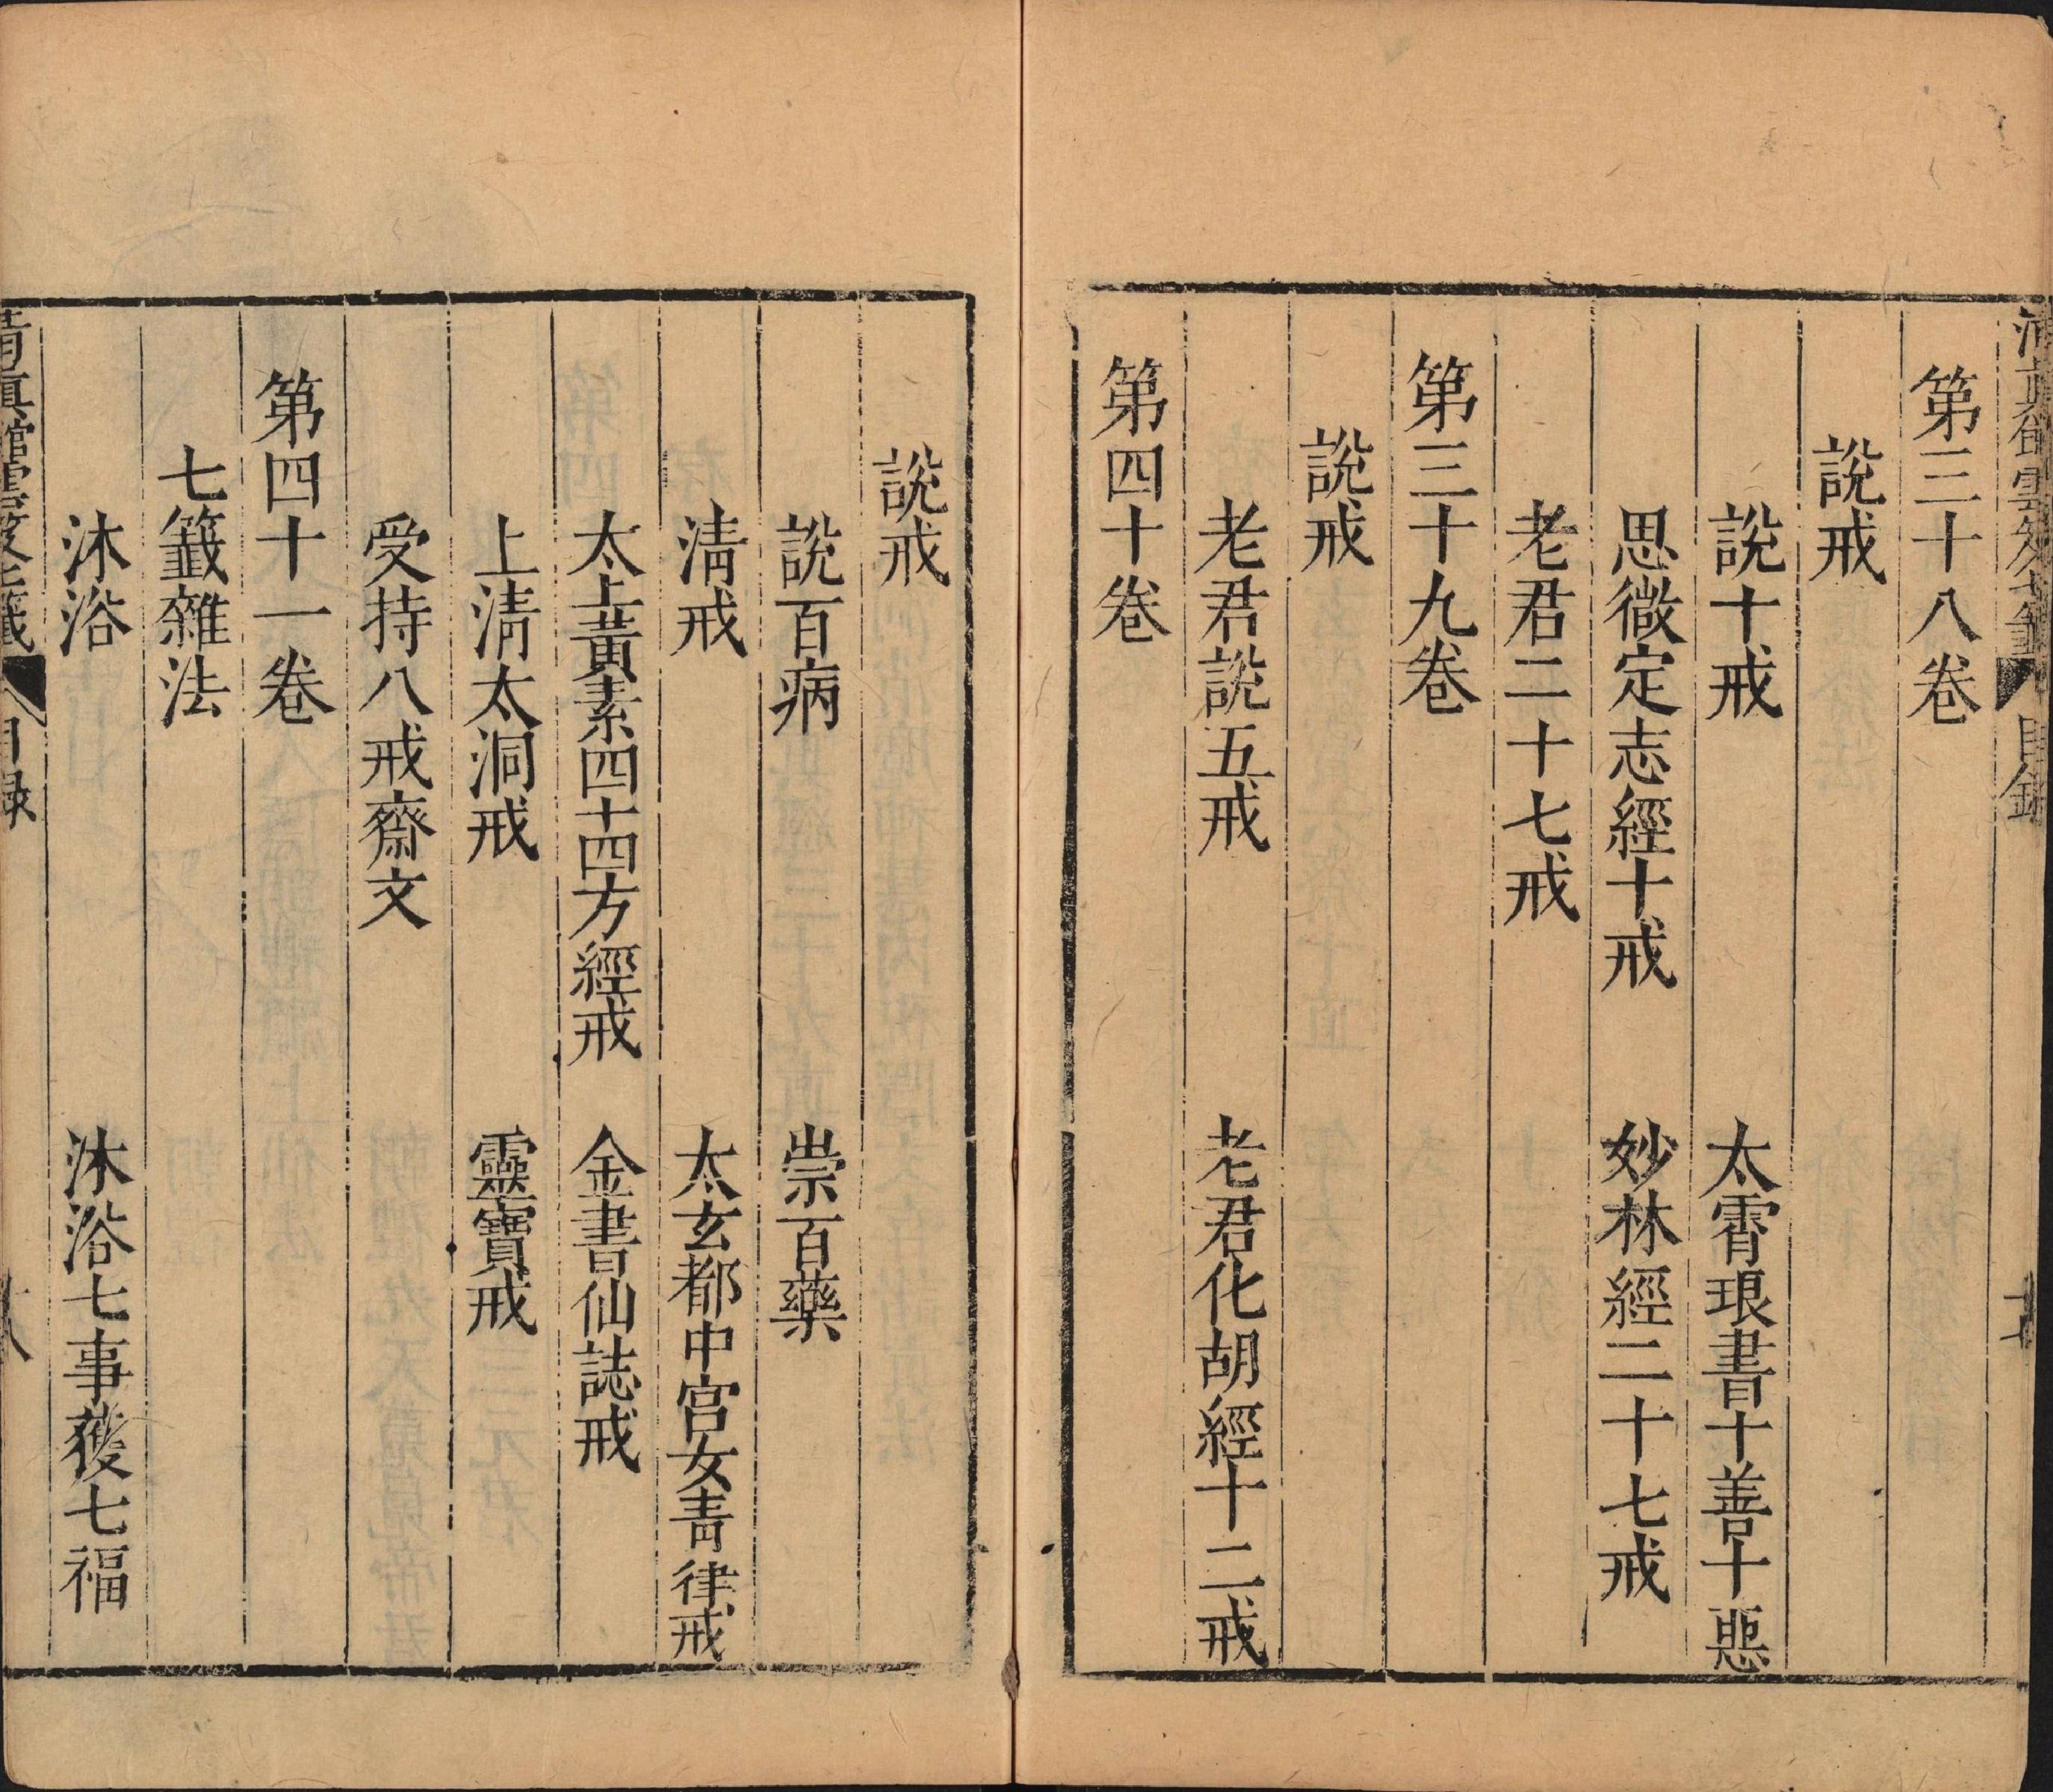 第三十八卷
說戒
說十戒　太霄琅書十善十惡
思微定志經十戒　妙林經二十七戒
老君二十七戒
第三十九卷
說戒
老君說五戒　老君化胡經十二戒
第四十卷
說戒
說百病　崇百藥
淸戒　太玄都中宮女靑律戒
太上黃素四十四方經戒　金書仙誌戒
上淸太洞戒　靈寶戒
受持八戒齋文
第四十一卷
七籤雜法
沐浴　沐浴七事獲七福
目錄